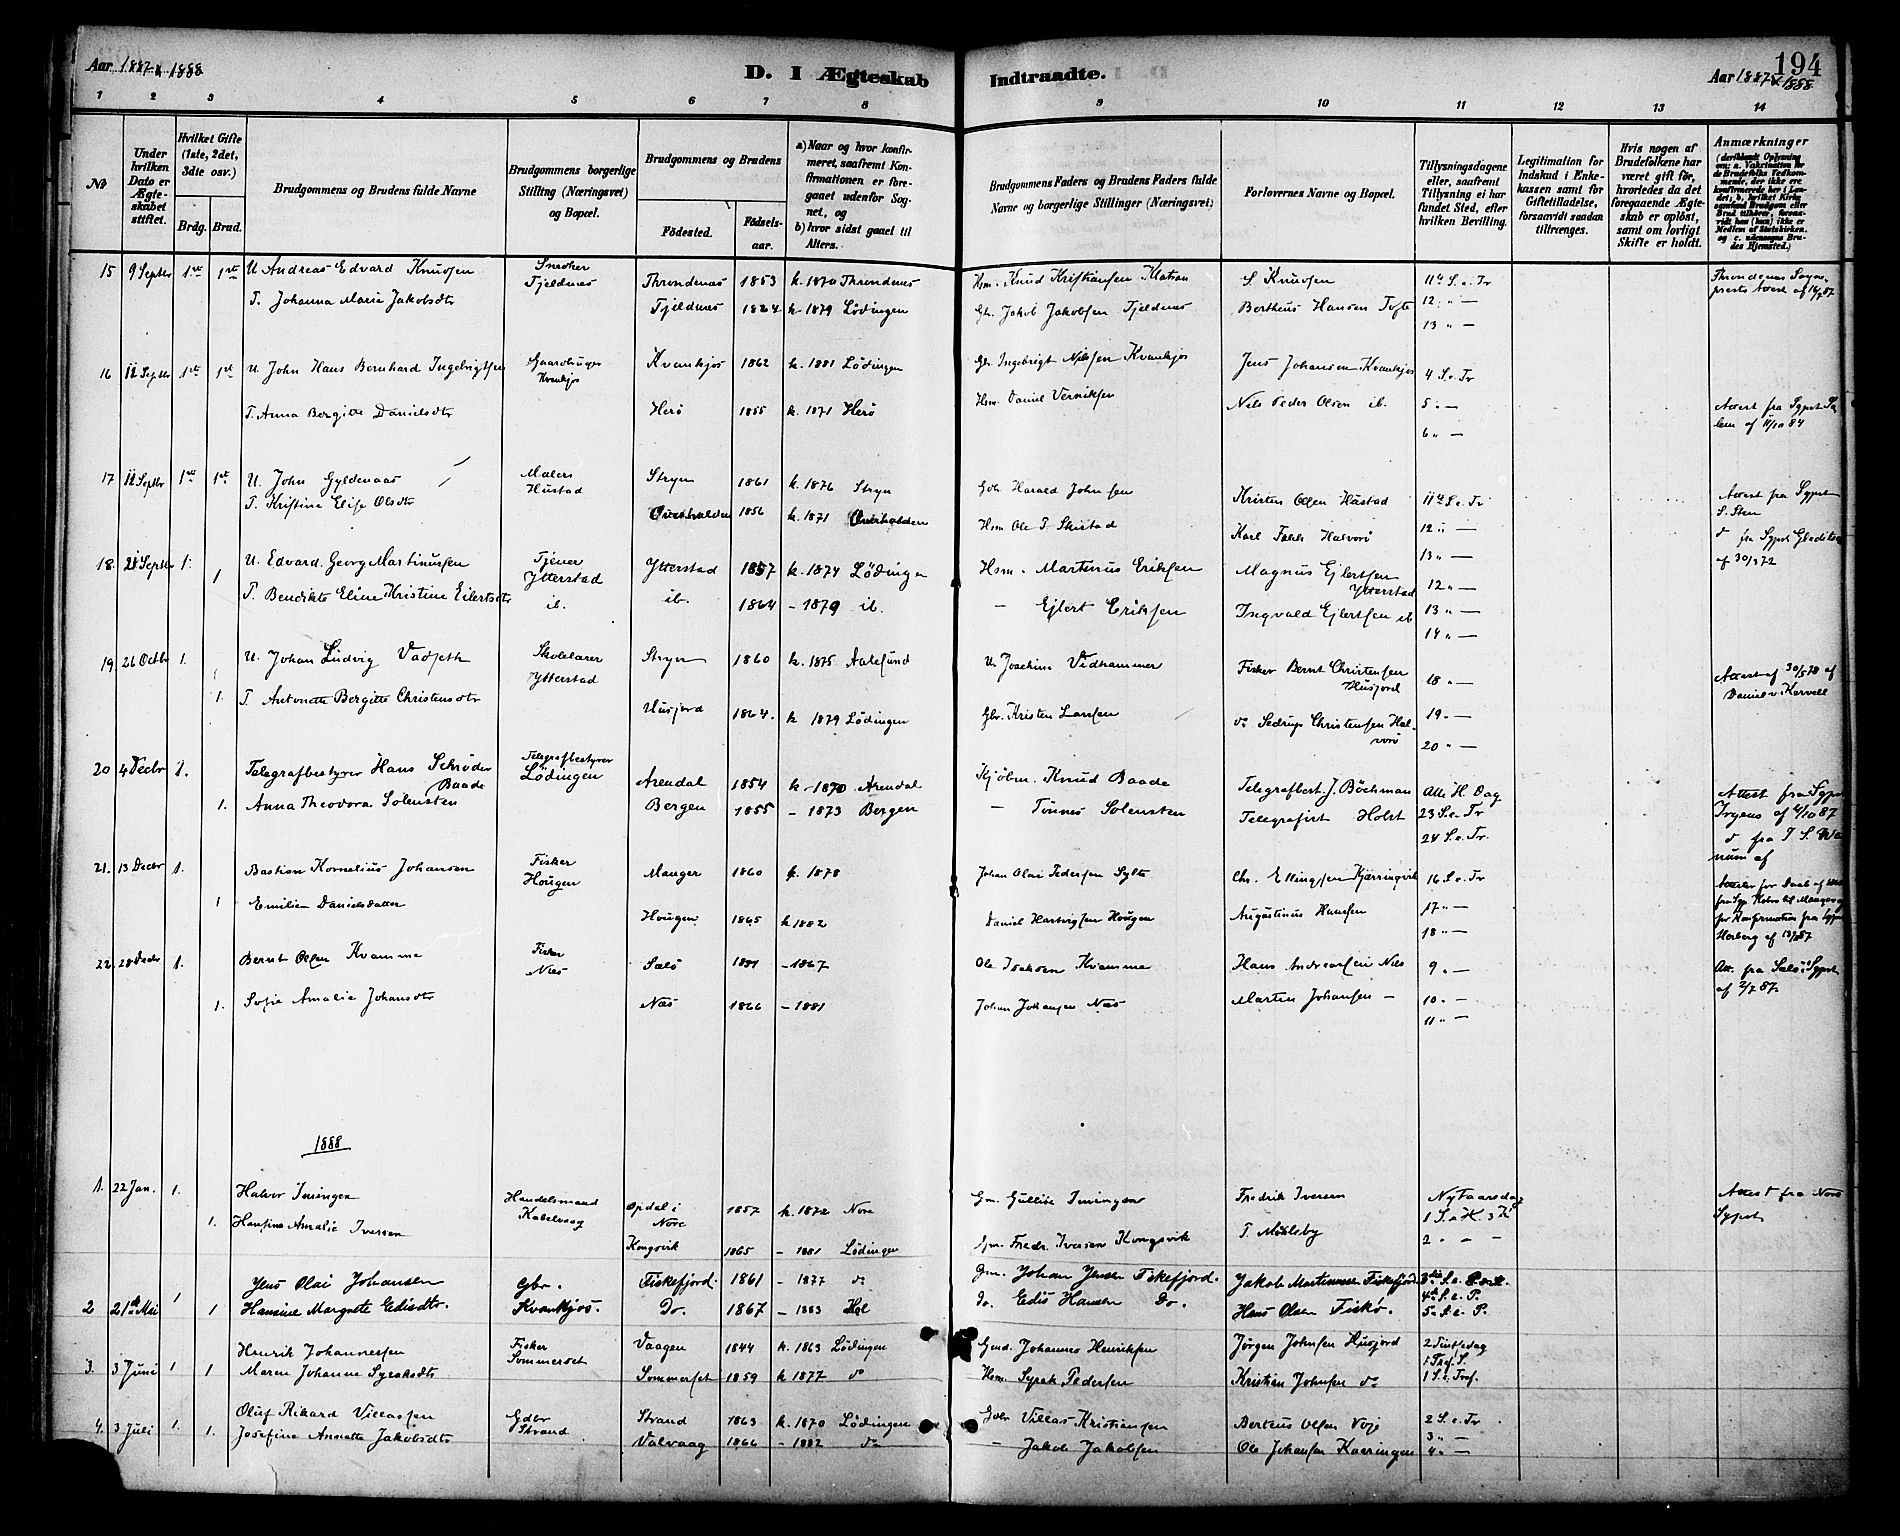 Aar 1887 & 1888
D. I Ægteskab Indtraadte.
Aar 1887 & 1888
194
1 2 3 4 5 6 7 8 9 10 11 12 13 14
No
Under hvilken Dato er Ægteskabet stiftet.
Hvilket Gifte (1ste, 2det, 3die osv.)
Brdg. Brud.
Brudgommens og Brudens fulde Navne
Brudgommens borgerlige Stilling (Næringsvei) og Bopæl.
Brudgommens og Brudens
Födested. Födselsaar.
a) Naar og hvor konfirmeret, saafremt Konfirmationen er foregaaet udenfor Sognet, og
b) hvor sidst gaaet til Alters.
Brudgommens Faders og Brudens Faders fulde Navne og borgerlige Stillinger (Næringsvei)
Forlovernes Navne og Bopæl.
Tillysningsdagene eller, saafremt Tillysning ei har fundet Sted, efter hvilken Bevilling.
Legitimation for Indskud i Enkekassen samt for Giftetilladelse, forsaavidt saadan tiltrænges.
Hvis nogen af Brudefolkene har været gift för, hvorledes da det foregaaende Ægteskab er oplöst, samt om lovligt Skifte er holdt.
Anmærkninger
15 9 Septbr 1ste 1ste U. Andreas Edvard Knudsen Snedker Fjeldnes Throndenæs 1853 k. 1870 Throndenes Hsm. Knud Kristiansen S Knudsen 11te S. e. Tr Throndenæs Sogneprests Attest af
T. Johanna Marie Jakobsdtr Fjeldnes 1864 k 1879 Lödingen Gbr. Jakob Jakobsen Fjeldnes Bertheus Hansen Tofte 12 " —
13 " —
16 11 Septbr 1ste 1st U. John Hans Bernhard Ingebrigtsen Gaardbruger Kvankjos Kvankjos 1862 k. 1881 Lödingen Gbr Ingebrigt Nilsen Kvankjos Jens Johansen Kvankjos 4 S. e. Tr
T. Anna Bergitte Danielsdtr Herö 1855 k. 1871 Herö Hsm. Daniel Nils Peder Olsen ib. 5 " — Attest fra Sgprst af 11/10 84
6 " —
17 11 Septbr 1ste 1st U. John Gyldenaas Malers Hustad Stryn 1861 k. 1876 Stryn Gbr Harald Johnsen Kristen Olsen Hustad 11te S. e. Tr Attest fra Sgprst
T. Kristine Elise Olsdtr Overhalden 1856 k. 1871 Overhalden Hsm Ole T. Skistad Karl Halvorö 12 " — d fra Sgprst
13 " — af 30/3 72
18. 21 Septbr 1. U. Edvard Georg Martinussen Tjener Ytterstad Ytterstad 1857 k. 1874 Lödingen Hsm. Martinus Eriksen Magnus Ejlertsen Ytterstad 12 " —
1 T. Bendikte Eline Kristine Eilertsdtr ib. ib. 1864 – 1879 ib. — Ejlert Eriksen Ingvald Ejlertsen ib 13 " —
14 " —
19 26 Octbr 1. U. Johan Ludvig Skolelærer Ytterstad Stryn 1860 k. 1875 Aalesund U. Joachim Vidhammer Fisker Bernt Christensen Husjord 18 " — Attest af 30/5 78 af Daniel v.
1. T. Antonette Bergitte Christensdtr Husjord 1864. k 1879 Lödingen Gbr. Kristen Larsen do Sedrup Christensen Halvorö 19 " —
20 " —
20 4 Decbr 1. Telegrafbestyrer Hans Schröder Baade Telegrafbestyrer Lödingen Arendal 1854 k. 1870 Arendal Kjöbm. Knud Baade Telegrafbest. J. Böckman Alle H. Dag Attest fra Sgprst Irgens af 4/10 87
1. Anna Theodora Solensten Bergen 1855 – 1873 Bergen — Tönnes Solensten Telegrafist Holst 23 S. e Tr d fra
24 S. e. Tr.
21. 13 Decbr 1. Bastian Kornelius Johansen Fisker Hougen Manger 1860 k. 1878 Johan Olai Pedersen Sylte Chr. Ellingsen Kjærringvik 16 S. e. Tr Attester for Daab af
1 Emilie Danielsdatter Hougen 1865 k 1882 Daniel Hartvigsen Hougen Augustinus Hansen 17 " — for Konfirmation fra Sgprst
18 " —
22 28 Decbr 1. Bernt Olsen Kvamme Fisker Næs Selö – 1867 Ole Isaksen Kvamme Hans Andreassen Næs 9 " — Att. fra Selö Sgprst af 2/7 87.
1. Sofie Amalie Johansdtr Næs 1866 – 1881 Johan Johansen Næs Martin Johansen — 10 " —
11 " —
1888
1. 22 Jan. 1. Halvor Imingen Handelsmand Kabelvaag Opdal i Nore 1857 k. 1872 Nore Gm. Gullik Imingen Fredrik Iversen Nytaarsdag Attest fra Nore Sgprst
1. Hansine Amalie Iversen Kongsvik 1865 – 1881 Lödingen Gm. Fredr. Iversen Kongsvik T. 2 " —
2 21de Mai 1 Jens Olai Johansen Gbr. Kvankjos. Fiskefjord. 1861 – 1877 do Gm. Johan Jensen Fiskefjord. Jakob Martinussen Fiskefjord 3die S. e. Paask.
1 Hansine Margrete Edisdtr. Do. 1867 – 1883 Hol do. Edis Hansen Do. Hans Olsen Fiskö. 4de S. e. P.
5te S. e. P.
3. 3 Juni 1 Henrik Johannessen Fisker Sommerset Vaagen 1844 k. 1863 Lödingen Gmd. Johannes Henriksen Jörgen Johnsen Husjord 2 Pintsedag
1 Maren Johanne Syraksdtr Sommerset 1859 k 1877 do Hsm. Syrak Pedersen Kristian Johnsen do 1 Tref. S.
1 S. e. Tref.
4. 3 Juli 1. Oluf Rikard Villassen Gdbr Strand Strand 1863 k. 1870 Lödingen Gdbr Villas Kristiansen Berteus Olsen Voje 2 S. e Tr
1. Josefine Annette Jakobsdtr Valvaag 1866 – 1882 do — Jakob Jakobsen Ole Johansen Kaeringen 3 " —
4 " —